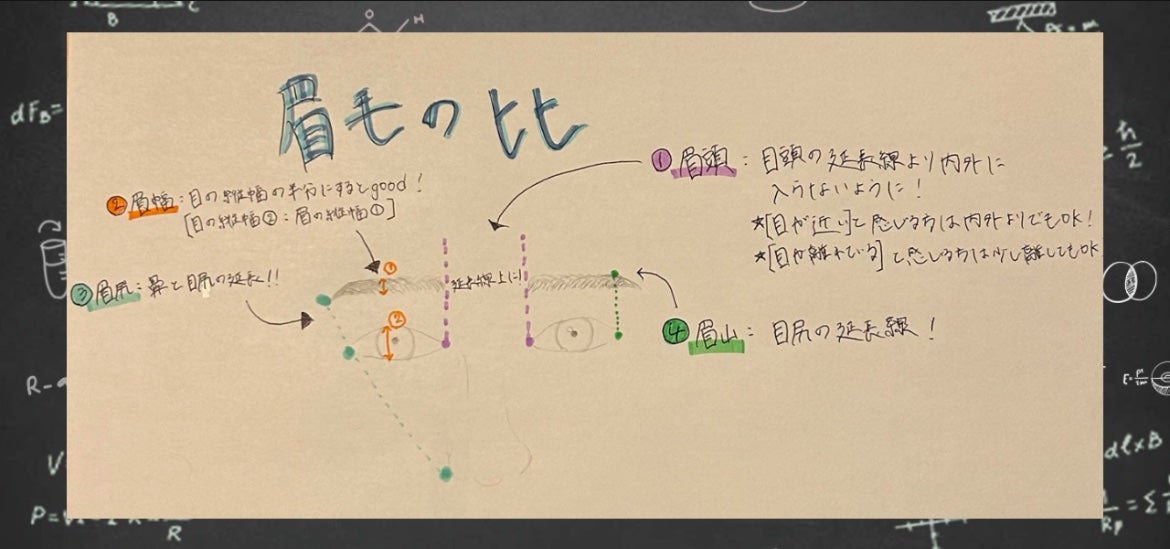 眉毛の比
①眉頭:目頭の延長線より内外に
入らないように!
★[目が近い]と感じる方は内外よりでもOK!
★[目が離れている]と感じる方は少し離してもOK
②眉幅:目の縦幅の半分にするとgood!
[目の縦幅②:眉の縦幅①]
③眉尻:鼻と目尻の延長!!
①
延長線上に!
②
④眉山:目尻の延長線!
B
C
O
H
dFB=
ħ/2
R-
V
P=
R
E=
dl×B
Rp
=Σ